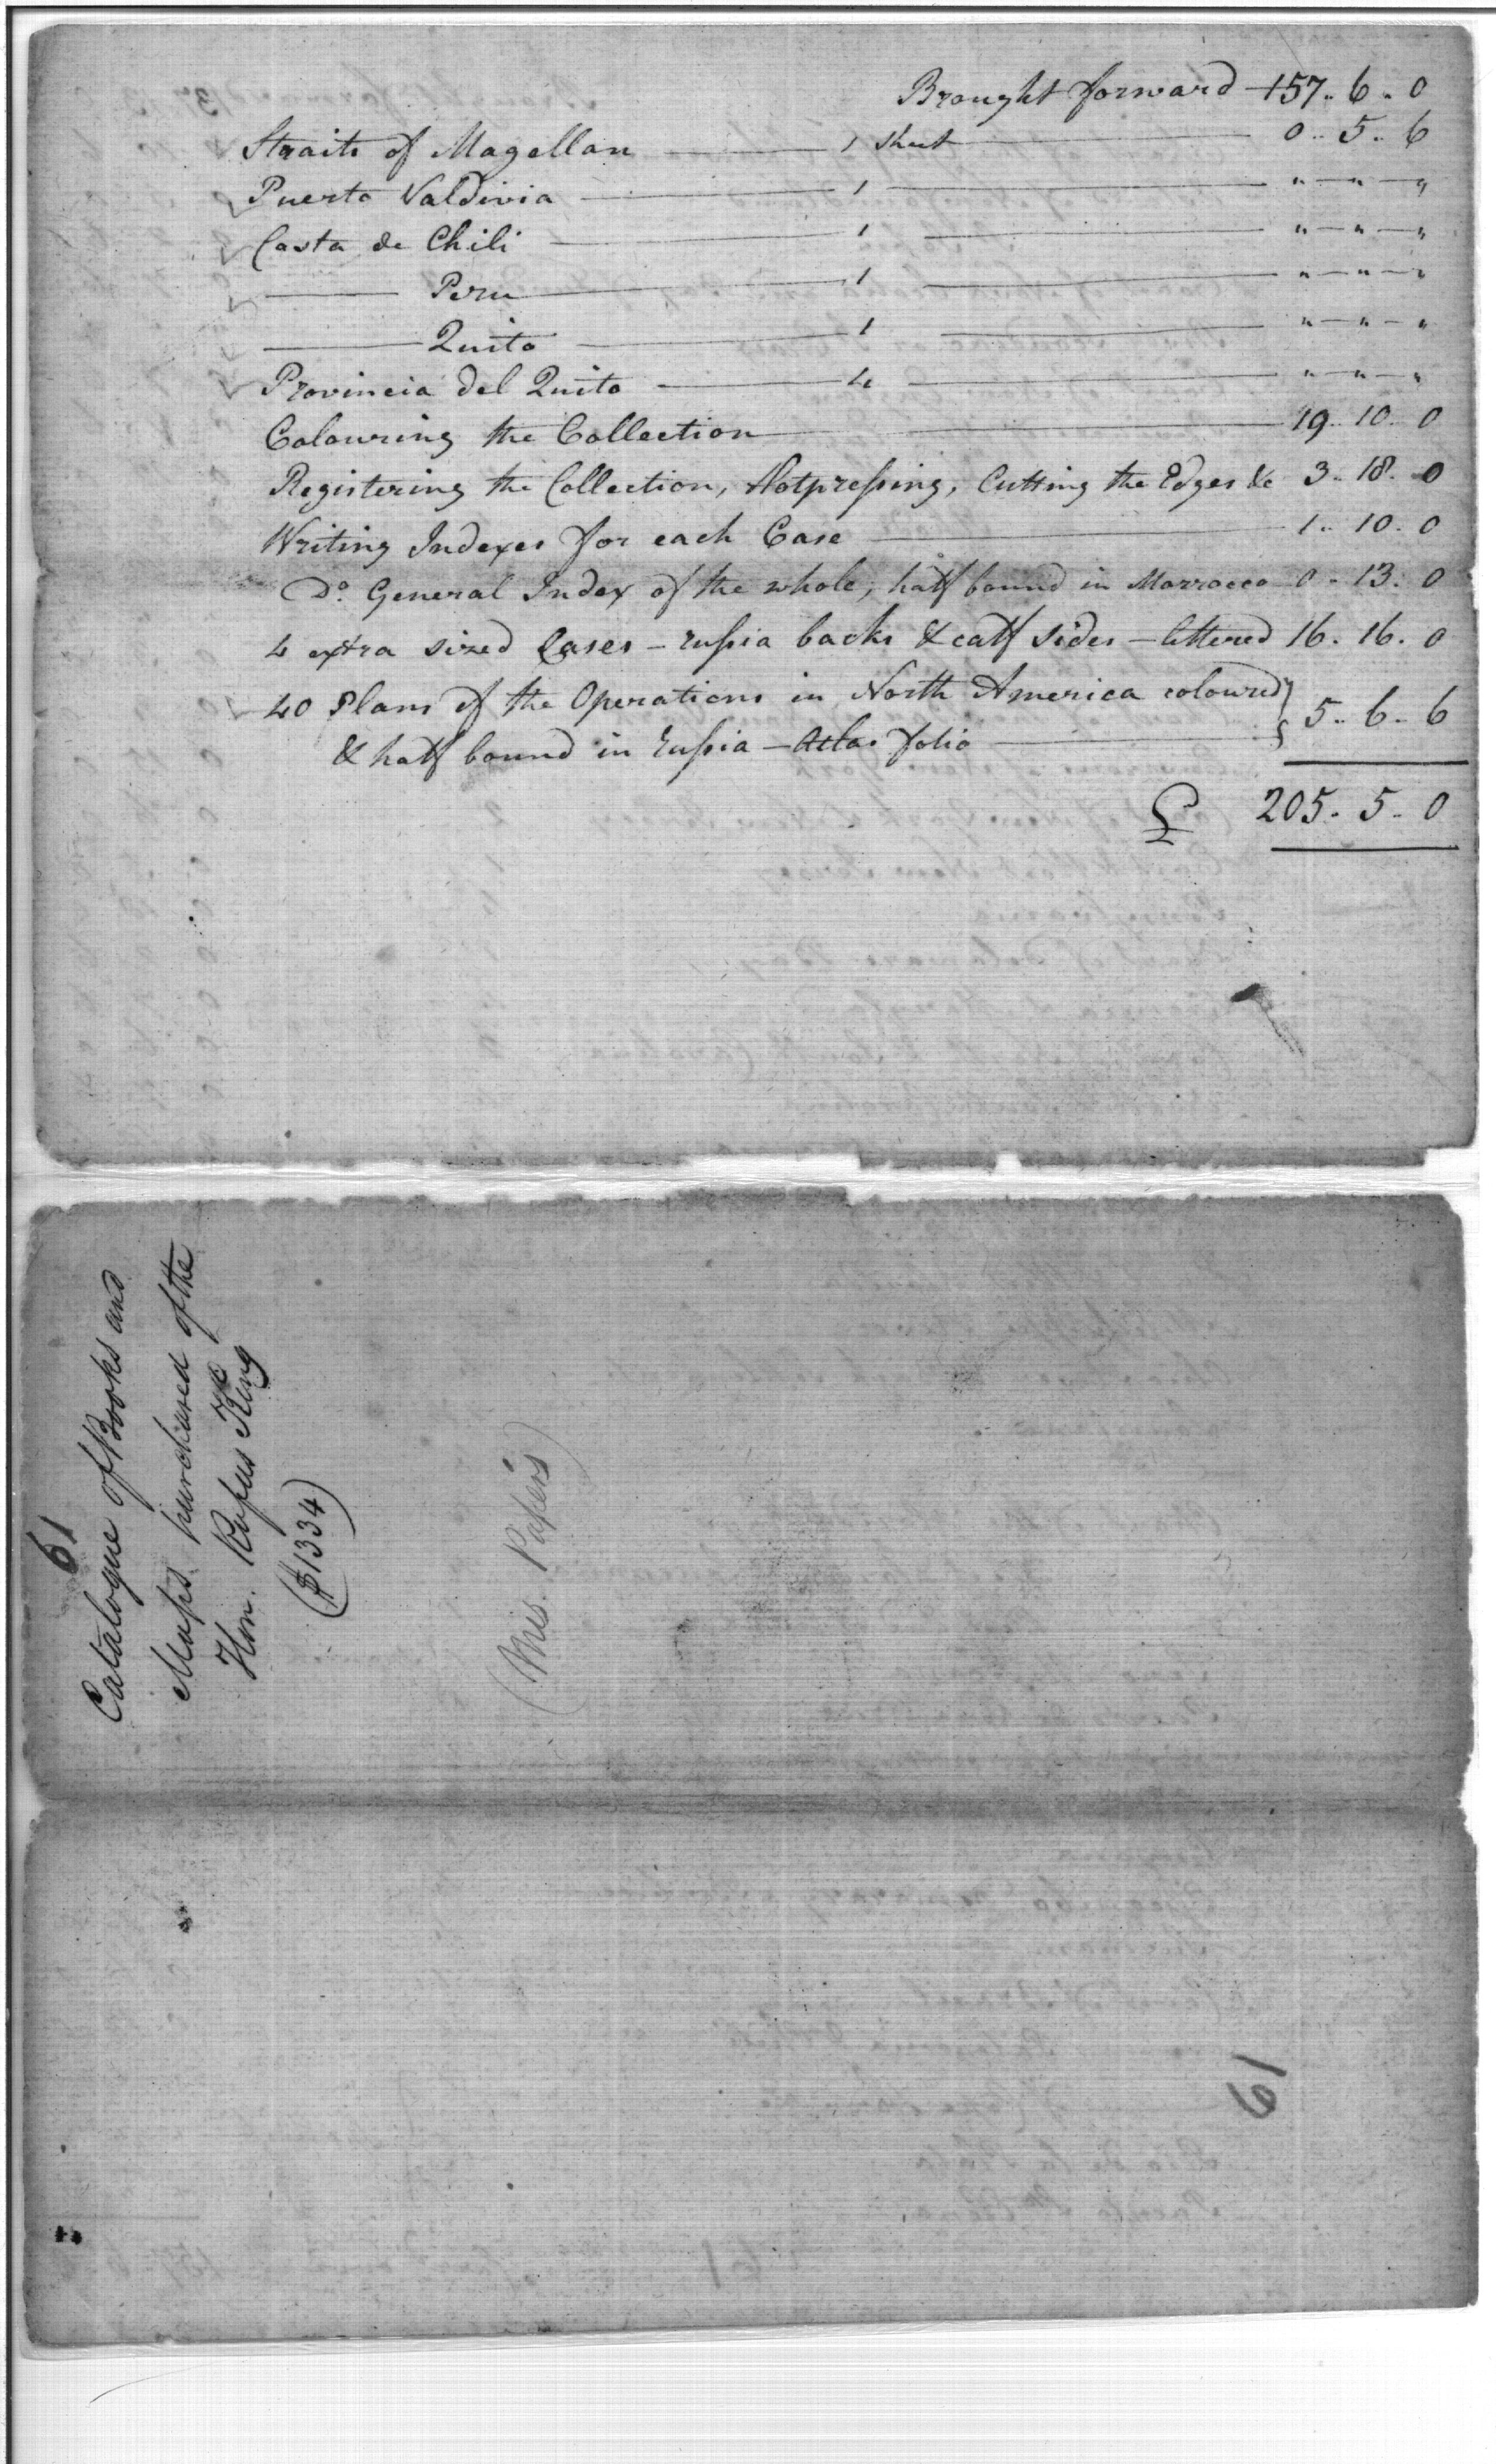 Brought forward 157.. 6.. 0
Straits of Magellan 1 Sheet 0.. 5.. 6
Puerto Valdivia 1 " — " — "
Costa de Chili 1 " — " — "
——— Peru 1 " — " — "
——— Quito 1 " — " — "
Provincia del Quito 4 " — " — "
Colouring the Collection 19.. 10.. 0
Registering the Collection, Hotpressing, Cutting the Edges &c 3.. 18.. 0
Writing Indexes for each Case 1.. 10.. 0
Do. General Index of the whole, half bound in Morrocco 0.. 13.. 0
4 extra sized Cases – russia backs & calf sides – lettered 16.. 16.. 0
40 Plans of the Operations in North America coloured } 5.. 6.. 6
& half bound in russia – Atlas folio
£ 205.. 5.. 0
61
Catalogue of Books and
Maps purchased of the
Hon. Rufus King
($1334)
(Mis. Papers)
61